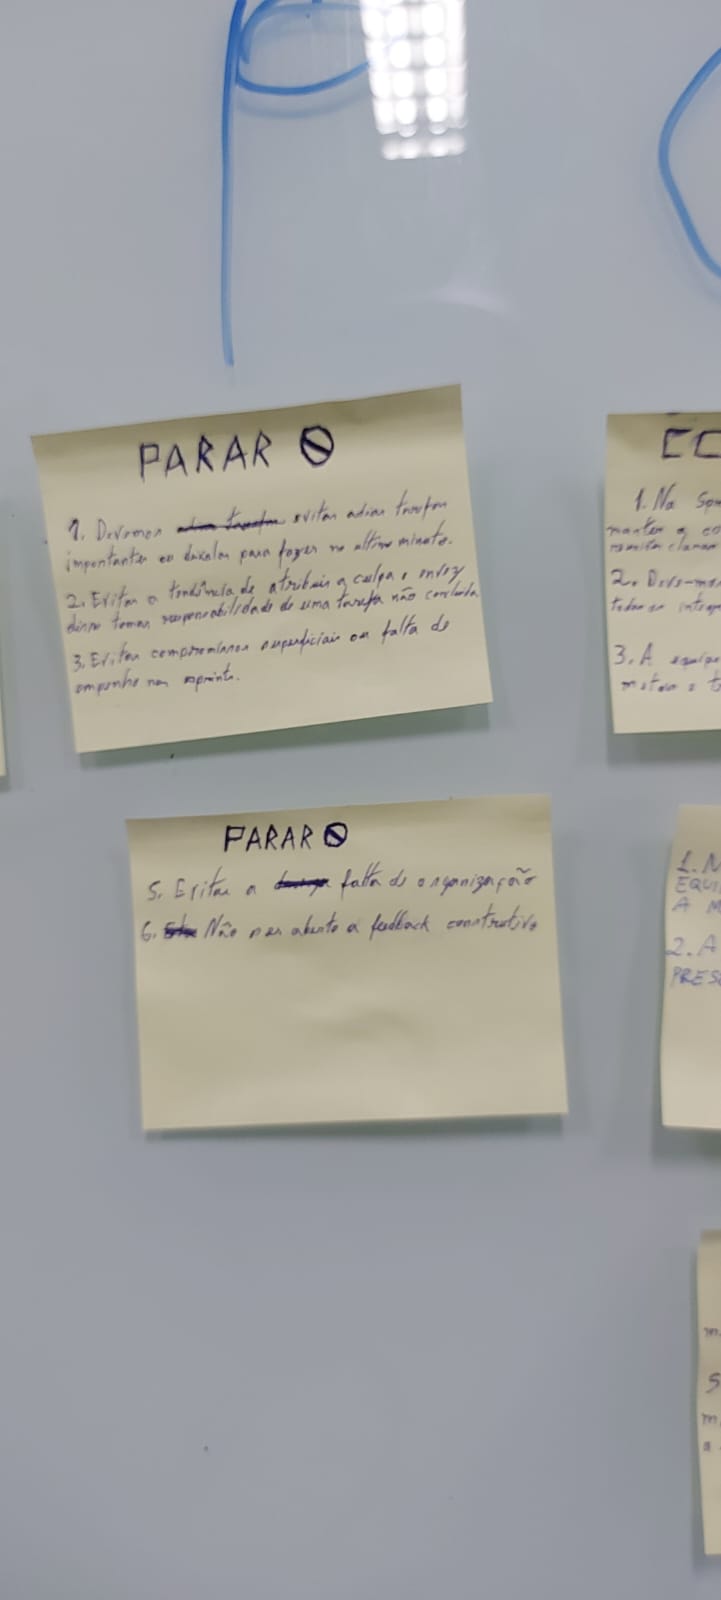 P
PARAR
1. Devemos evitar adiar tarefas
importantes ou deixalas para fazer no ultimo minuto.
2. Evitar a tendência de atribuir a culpa e envez
disso tomar responsabilidade de uma tarefa não concluida
3. Evitar compromissos superficiais ou falta de
empenho nas sprints.
PARAR
5. Evitar a falta de organização
6. Não ser aberto a feedback construtivo
1. Na
manter a
2. Deve-mos
3. A equipe
1.
EQUI
A M
2. A
PRES